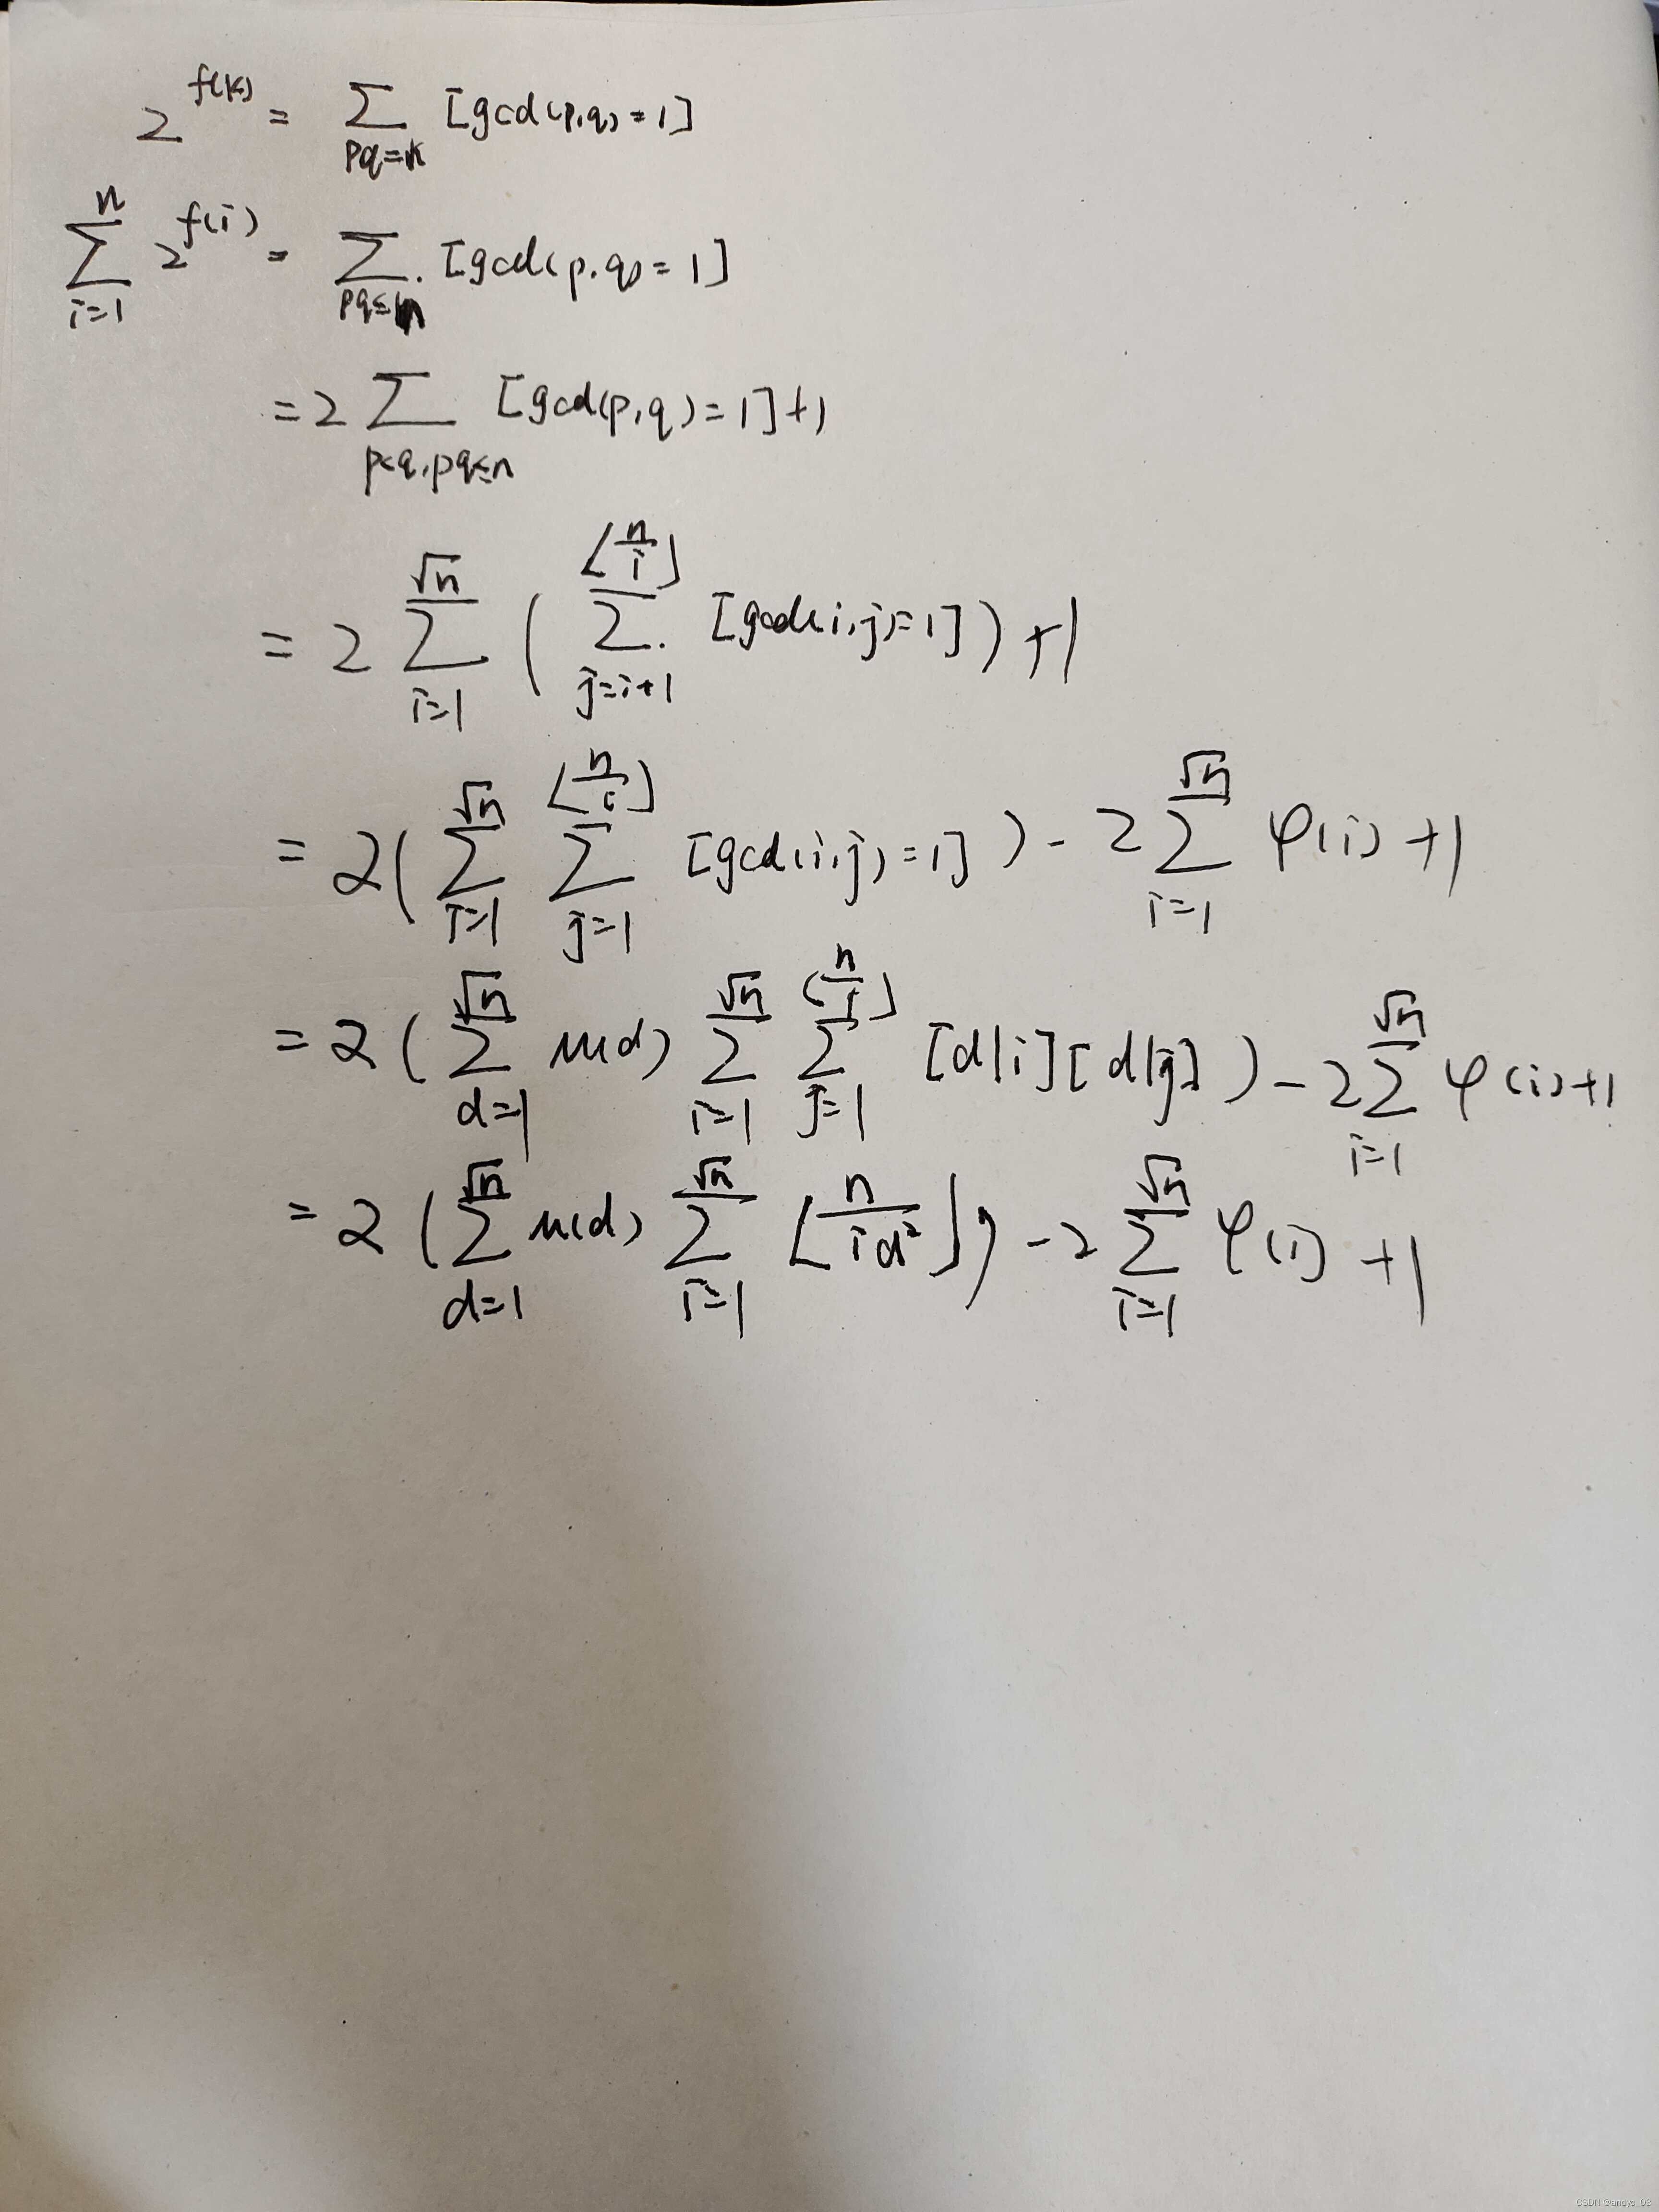 2^{f(k)} = \sum_{pq=k} [gcd(p,q)=1]
\sum_{i=1}^{n} 2^{f(i)} = \sum_{pq≤n} [gcd(p,q)=1]
= 2 \sum_{p<q, pq≤n} [gcd(p,q)=1]+1
= 2 \sum_{i=1}^{\sqrt{n}} ( \sum_{j=i+1}^{⌊\frac{n}{i}⌋} [gcd(i,j)=1] ) +1
= 2( \sum_{i=1}^{\sqrt{n}} \sum_{j=1}^{⌊\frac{n}{i}⌋} [gcd(i,j)=1] ) - 2 \sum_{i=1}^{\sqrt{n}} φ(i) +1
= 2 ( \sum_{d=1}^{\sqrt{n}} μ(d) \sum_{i=1}^{\sqrt{n}} \sum_{j=1}^{⌊\frac{n}{i}⌋} [d|i][d|j] ) - 2 \sum_{i=1}^{\sqrt{n}} φ(i)+1
= 2 ( \sum_{d=1}^{\sqrt{n}} μ(d) \sum_{i=1}^{\sqrt{n}} ⌊\frac{n}{id^2}⌋ ) - 2 \sum_{i=1}^{\sqrt{n}} φ(i) +1
CSDN @andyc_03